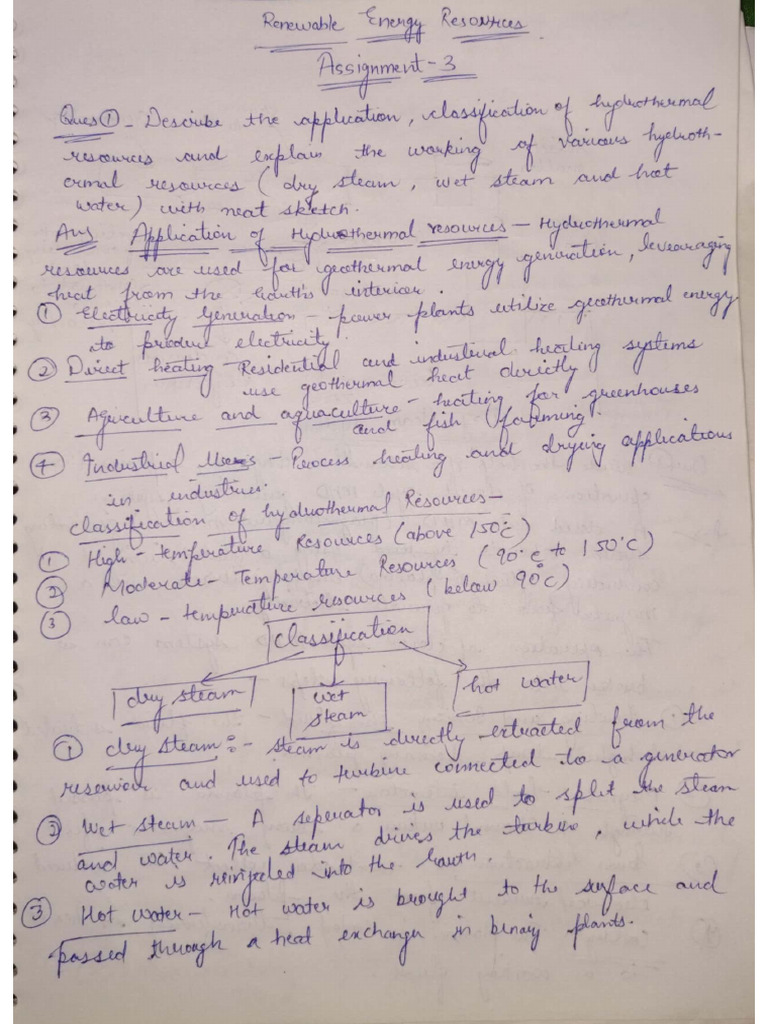 Renewable Energy Resources
Assignment-3
Ques① - Describe the application, classification of hydrothermal
resources and explain the working of various hydroth-
ermal resources (dry steam, wet steam and hot
water) with neat sketch.
Ans Application of Hydrothermal resources - Hydrothermal
resources are used for geothermal energy generation, levearaging
heat from the Earth's interior.
① Electricity Generation - power plants utilize geothermal energy
to produce electricity.
② Direct heating - Residential and industrial heating systems
use geothermal heat directly
③ Agriculture and aquaculture - heating for greenhouses
and fish farming.
④ Industrial Uses - Process heating and drying applications
in industries.
Classification of hydrothermal Resources-
① High-temperature Resources (above 150°c)
② Moderate-Temperature Resources (90°c to 150°c)
③ law-temperature resources (below 90°c)
Classification
dry steam
wet
steam
hot water
① dry steam :- steam is directly extracted from the
reservour and used to turbine connected to a generator
② Wet steam - A seperator is used to split the steam
and water. The steam drives the turbine, while the
water is reinjected into the Earth.
③ Hot water - Hot water is brought to the surface and
passed through a heat exchanger in binary plants.